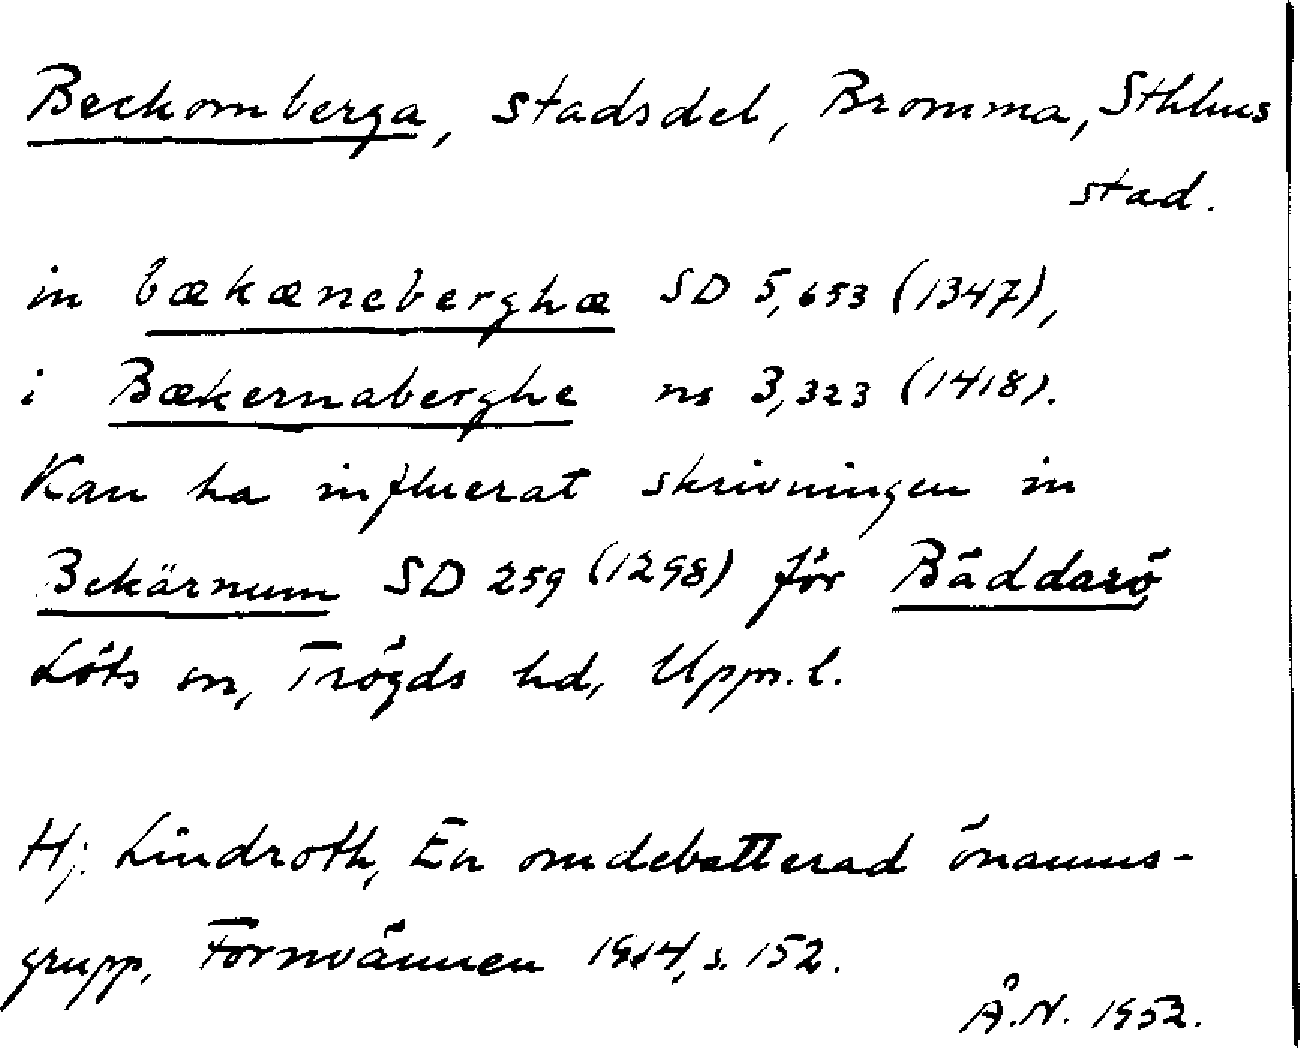 Beckomberga, stadsdel, Bromma, Sthlms
stad.
in bækæneberghæ SD 5,653 (1347),
i Bækernaberghe ns 3,323 (1418).
Kan ha influerat skrivningen in
Bekärnum SD 259 (1298) för Bäddarö,
Löts sn, Trögds hd, Uppl.
Hj. Lindroth, En omdebatterad önamns-
grupp, Fornvännen 1914, s. 152.
Å.N. 1952.